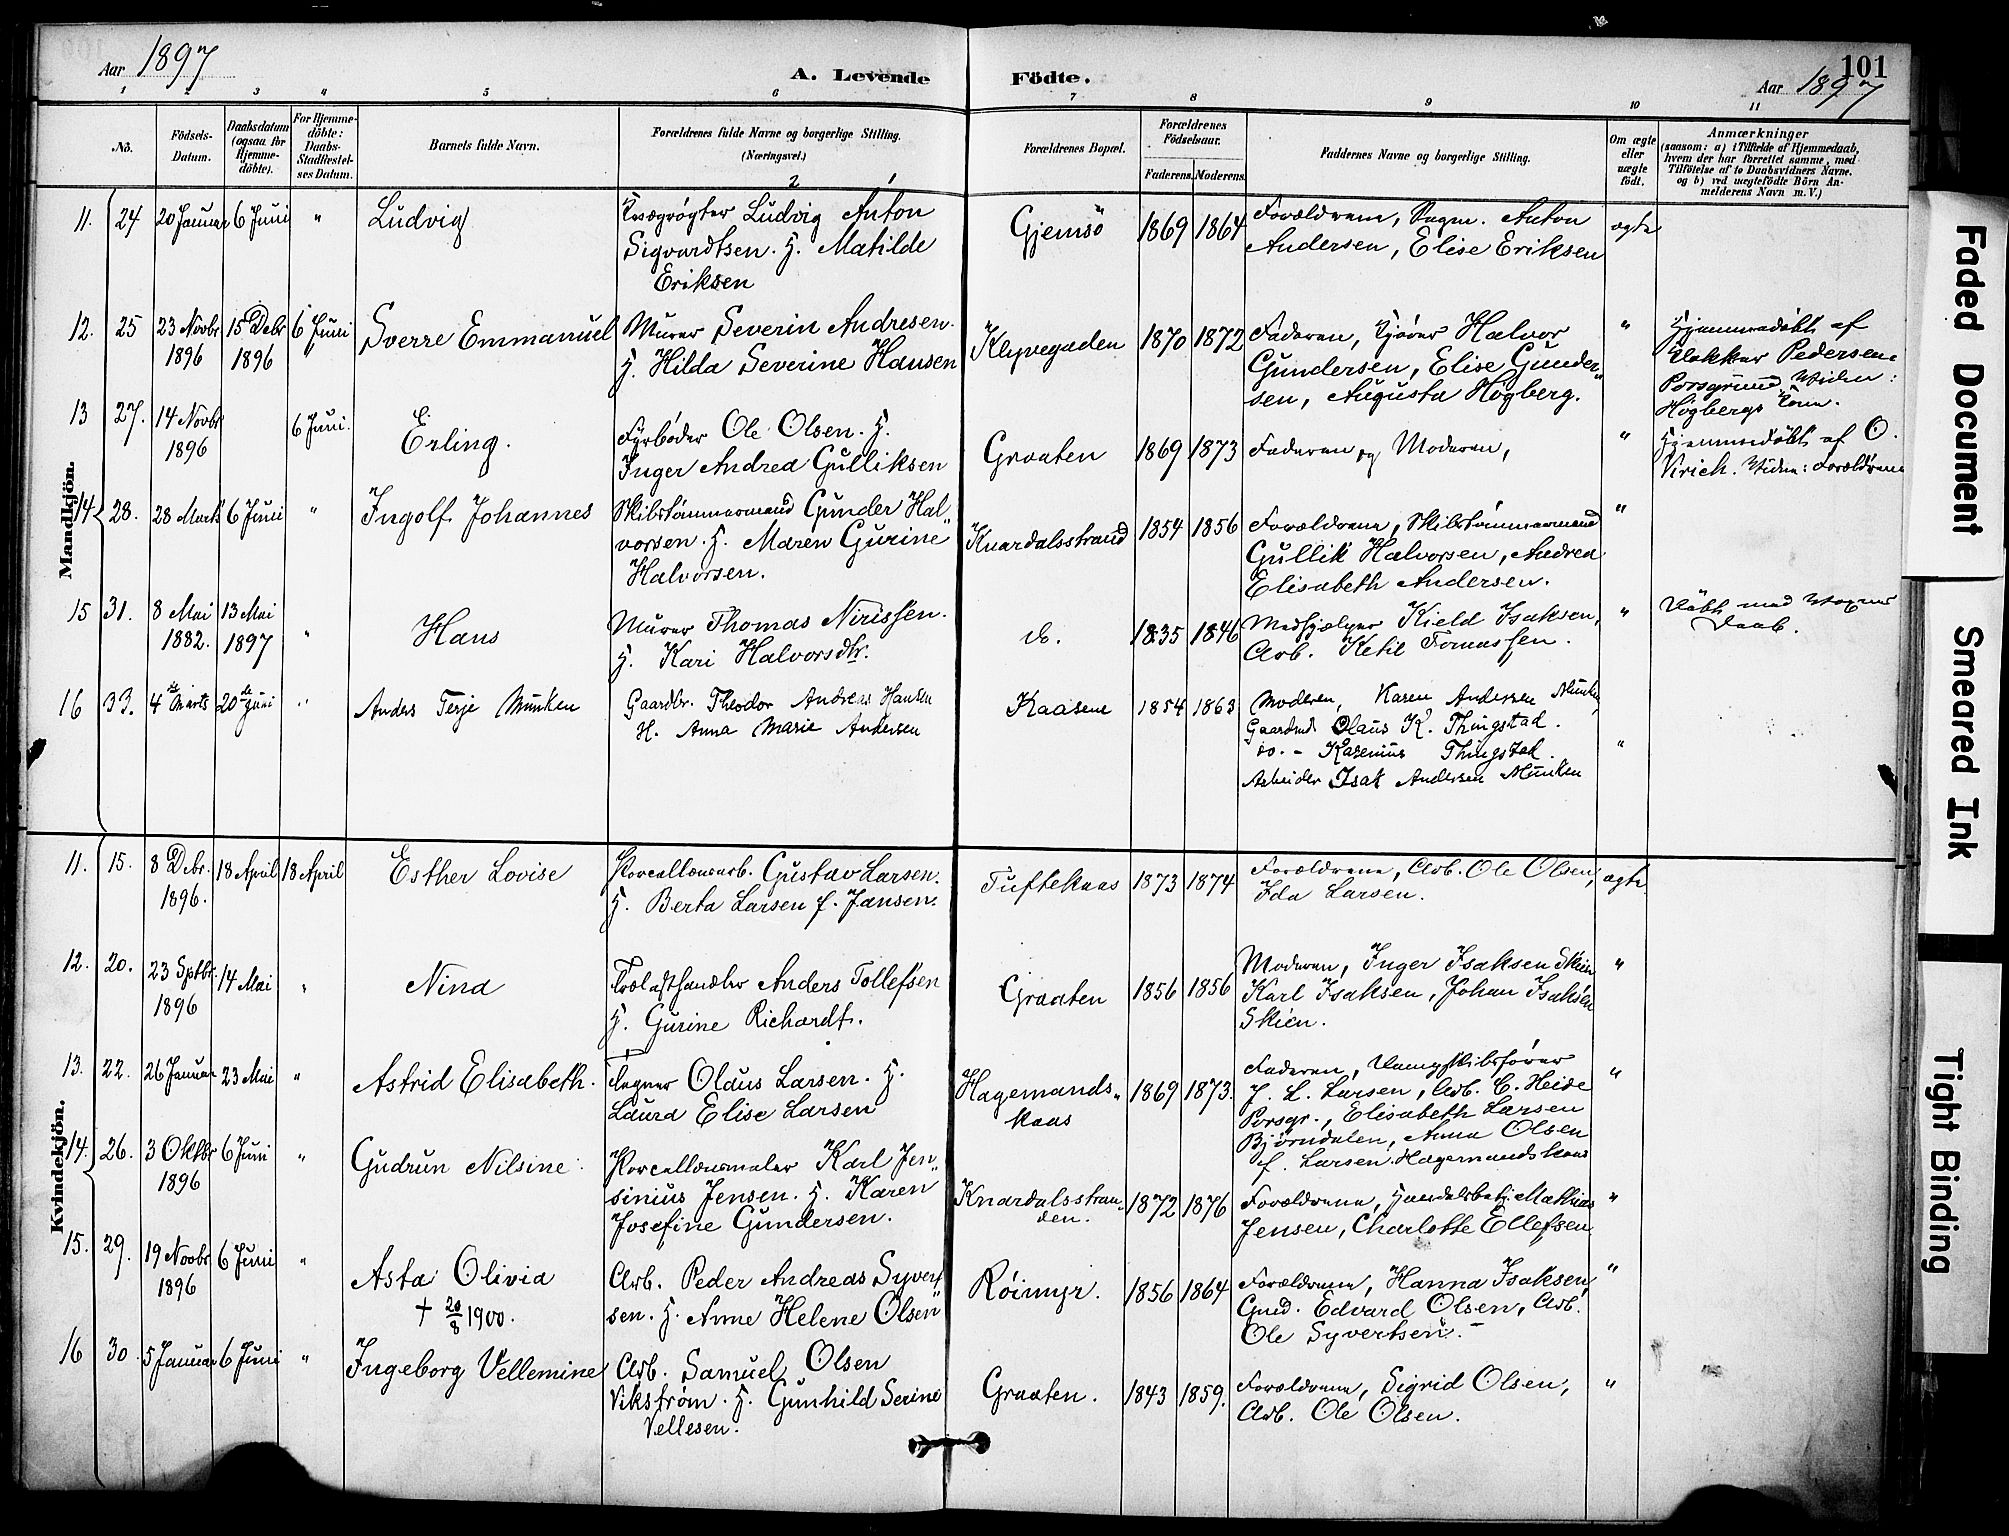 Aar 1897
A. Levende Födte.
101
Aar 1897
1 2 3 4 5 6 7 8 9 10 11
No.
Födsels-Datum.
Daabsdatum (ogsaa for Hjemme-döbte).
For Hjemme-döbte: Daabs-Stadfæstel-ses Datum.
Barnets fulde Navn.
Forældrenes fulde Navne og borgerlige Stilling. (Næringsvei.)
Forældrenes Bopæl.
Forældrenes Födselsaar.
Faderens. Moderens.
Faddernes Navne og borgerlige Stilling.
Om ægte eller uægte födt.
Anmærkninger
(saasom: a) i Tilfælde af Hjemmedaab, hvem der har forrettet samme, med Tilföielse af to Daabsvidners Navne, og b) ved uægtefödte Börn An-melderens Navn m. V.)
2 1
Mandkjön.
11. 24 20 Januar 6 Juni " Ludvig
Kvægrøgter Ludvig Anton
Sigvardtsen. H. Matilde
Eriksen
Gjemsö 1869 1864
Forældrene, Bagm. Anton
Andersen, Elise Eriksen
ægte
12. 25 23 Novbr 1896 15 Debr 1896 6 Juni Sverre Emmanuel
Murer Severin Andresen.
H. Hilda Severine Hansen
Klyvegaden 1870 1872
Faderen, Kjører Halvor
Gundersen, Elise Gunder-
sen, Augusta Högberg.
"
Hjemmedöbt af
Dokker Pedersen.
Porsgrund Widn:
Högbergs Kone.
13 27. 14 Novbr 1896 6 Juni. Erling.
Fyrböder Ole Olsen. H.
Inger Andrea Gulliksen
Graaten 1869 1873
Faderen og Moderen,
"
Hjemmedöbt af O.
Virich. Widn: Forældrene
14 28. 28 Marts 6 Juni " Ingolf Johannes
Skibstömmermand Gunder Hal-
vorsen. H. Maren Gurine
Halvorsen.
Knardalsstrand 1854 1856
Forældrene, Skibstömmermand
Gullik Halvorsen, Andrea
Elisabeth Andersen.
"
15 31. 8 Mai 1882. 13 Mai 1897 " Hans
Murer Thomas Nirissen.
H. Kari Halvorsdtr.
do. 1835 1846
Medhjælper Kield Isaksen,
Arb. Ketil Tomassen.
"
Döbt med Voxnes
Daab.
16 33. 4de Marts 20de Juni " Anders Terje Munken
Gaardbr. Theodor Andreas Hansen
H. Anna Marie Andersen
Kaasene 1854 1863
Moderen, Karen Andersen Munken
Gaardmd. Olaus K. Thingstad.
do. - Kasenius Thingstad.
Arbeider Isak Andersen Munken
"
Kvindekjön.
11. 15. 8 Debr. 1896. 18 April 18 April Esther Lovise
Porcellænsarb. Gustav Larsen.
H. Berta Larsen f. Jansen.
Tuftekaas 1873 1874
Forældrene, Arb. Ole Olsen,
Ida Larsen.
ægte
12. 20. 23 Sptbr. 1896 14 Mai " Nina
Trælasthandler Anders Tollefsen
H. Gurine Richardt.
Graaten 1856 1856
Moderen, Inger Isaksen Skien
Karl Isaksen, Johan Isaksen
Skien.
"
13. 22. 26 Januar 23 Mai " Astrid Elisabeth.
Tegner Olaus Larsen. H.
Laura Elise Larsen
Hagemands-
kaas 1869 1873.
Faderen, Dampskibsförer
J. L. Larsen, Arb. C. Heide
Porsgr., Elisabeth Larsen
Björndalen, Anna Olsen
f. Larsen Hagemandskaas
"
14. 26. 3 Oktbr 1896 6 Juni " Gudrun Nilsine.
Porcellænsmaler Karl Jen-
sinius Jensen. H. Karen
Josefine Gundersen.
Knardalsstran-
den. 1872 1876
Forældrene, Handelsbetj. Mathias
Jensen, Charlotte Ellefsen
"
15. 29. 19 Novbr 1896 6 Juni " Asta Olivia
† 20/8 1900.
Arb. Peder Andreas Syvert-
sen. H. Anne Helene Olsen
Röimyr. 1856 1864
Forældrene, Hanna Isaksen,
Gmd. Edvard Olsen, Arb.
Ole Syvertsen.
"
16 30. 5 Januar 6 Juni " Ingeborg Vellemine
Arb. Samuel Olsen
Vikström. H. Gunhild Serine
Vellesen.
Graaten. 1843 1859.
Forældrene, Sigrid Olsen,
Arb. Ole Olsen.
"
Faded Document
Smeared Ink
Tight Binding